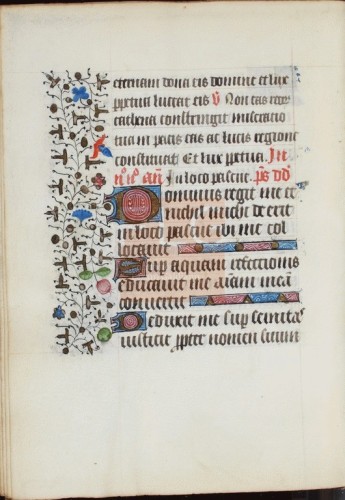 eternam dona eis domine et lux
ppetua luceat eis V Non eas
cathena constringit miseratio
tua in pacis eas ac lucis regione
constituat Et lux ppetua In
an In loco pascue ps dd
Dominus regit me et
nichil michi de erit
in loco pascue ibi me col
locauit
Sup aquam refectionis
educauit me aiam meā
conuertit
Deduxit me sup semitas
iusticie ppter nomen suum